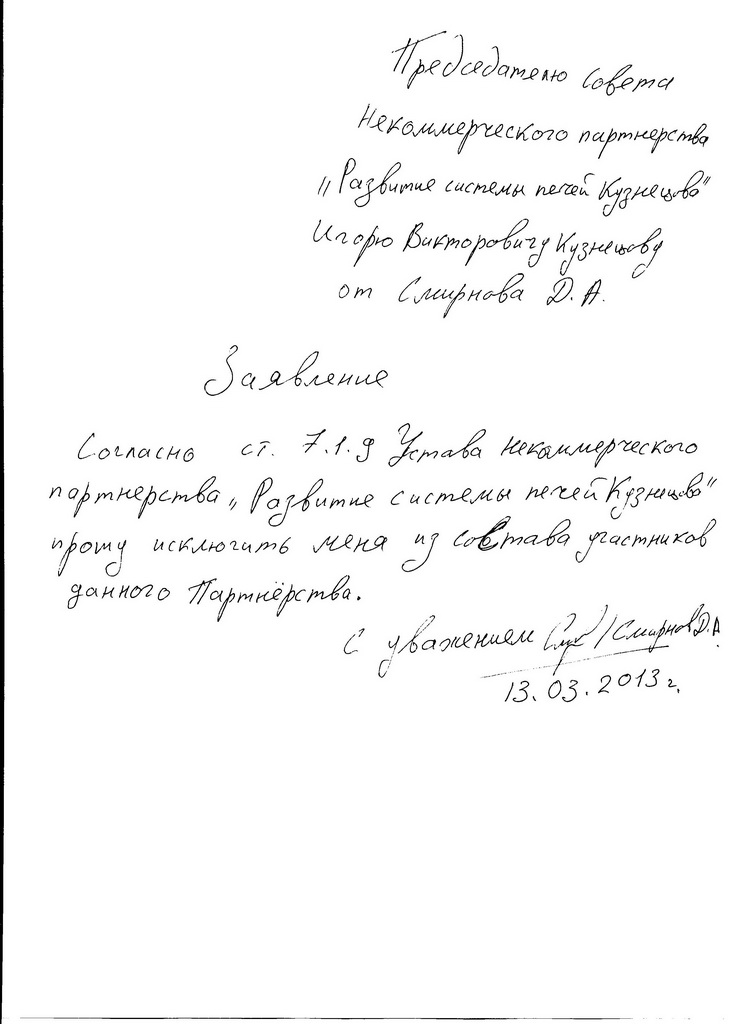 Председателю Совета
Некоммерческого партнерства
„Развитие системы печей Кузнецова"
Игорю Викторовичу Кузнецову
от Смирнова Д.А.
Заявление
Согласно ст. 7.1.д Устава некоммерческого
партнерства „Развитие системы печей Кузнецова"
прошу исключить меня из состава участников
данного Партнёрства.
С уважением /Смирнов Д.А.
13.03.2013 г.